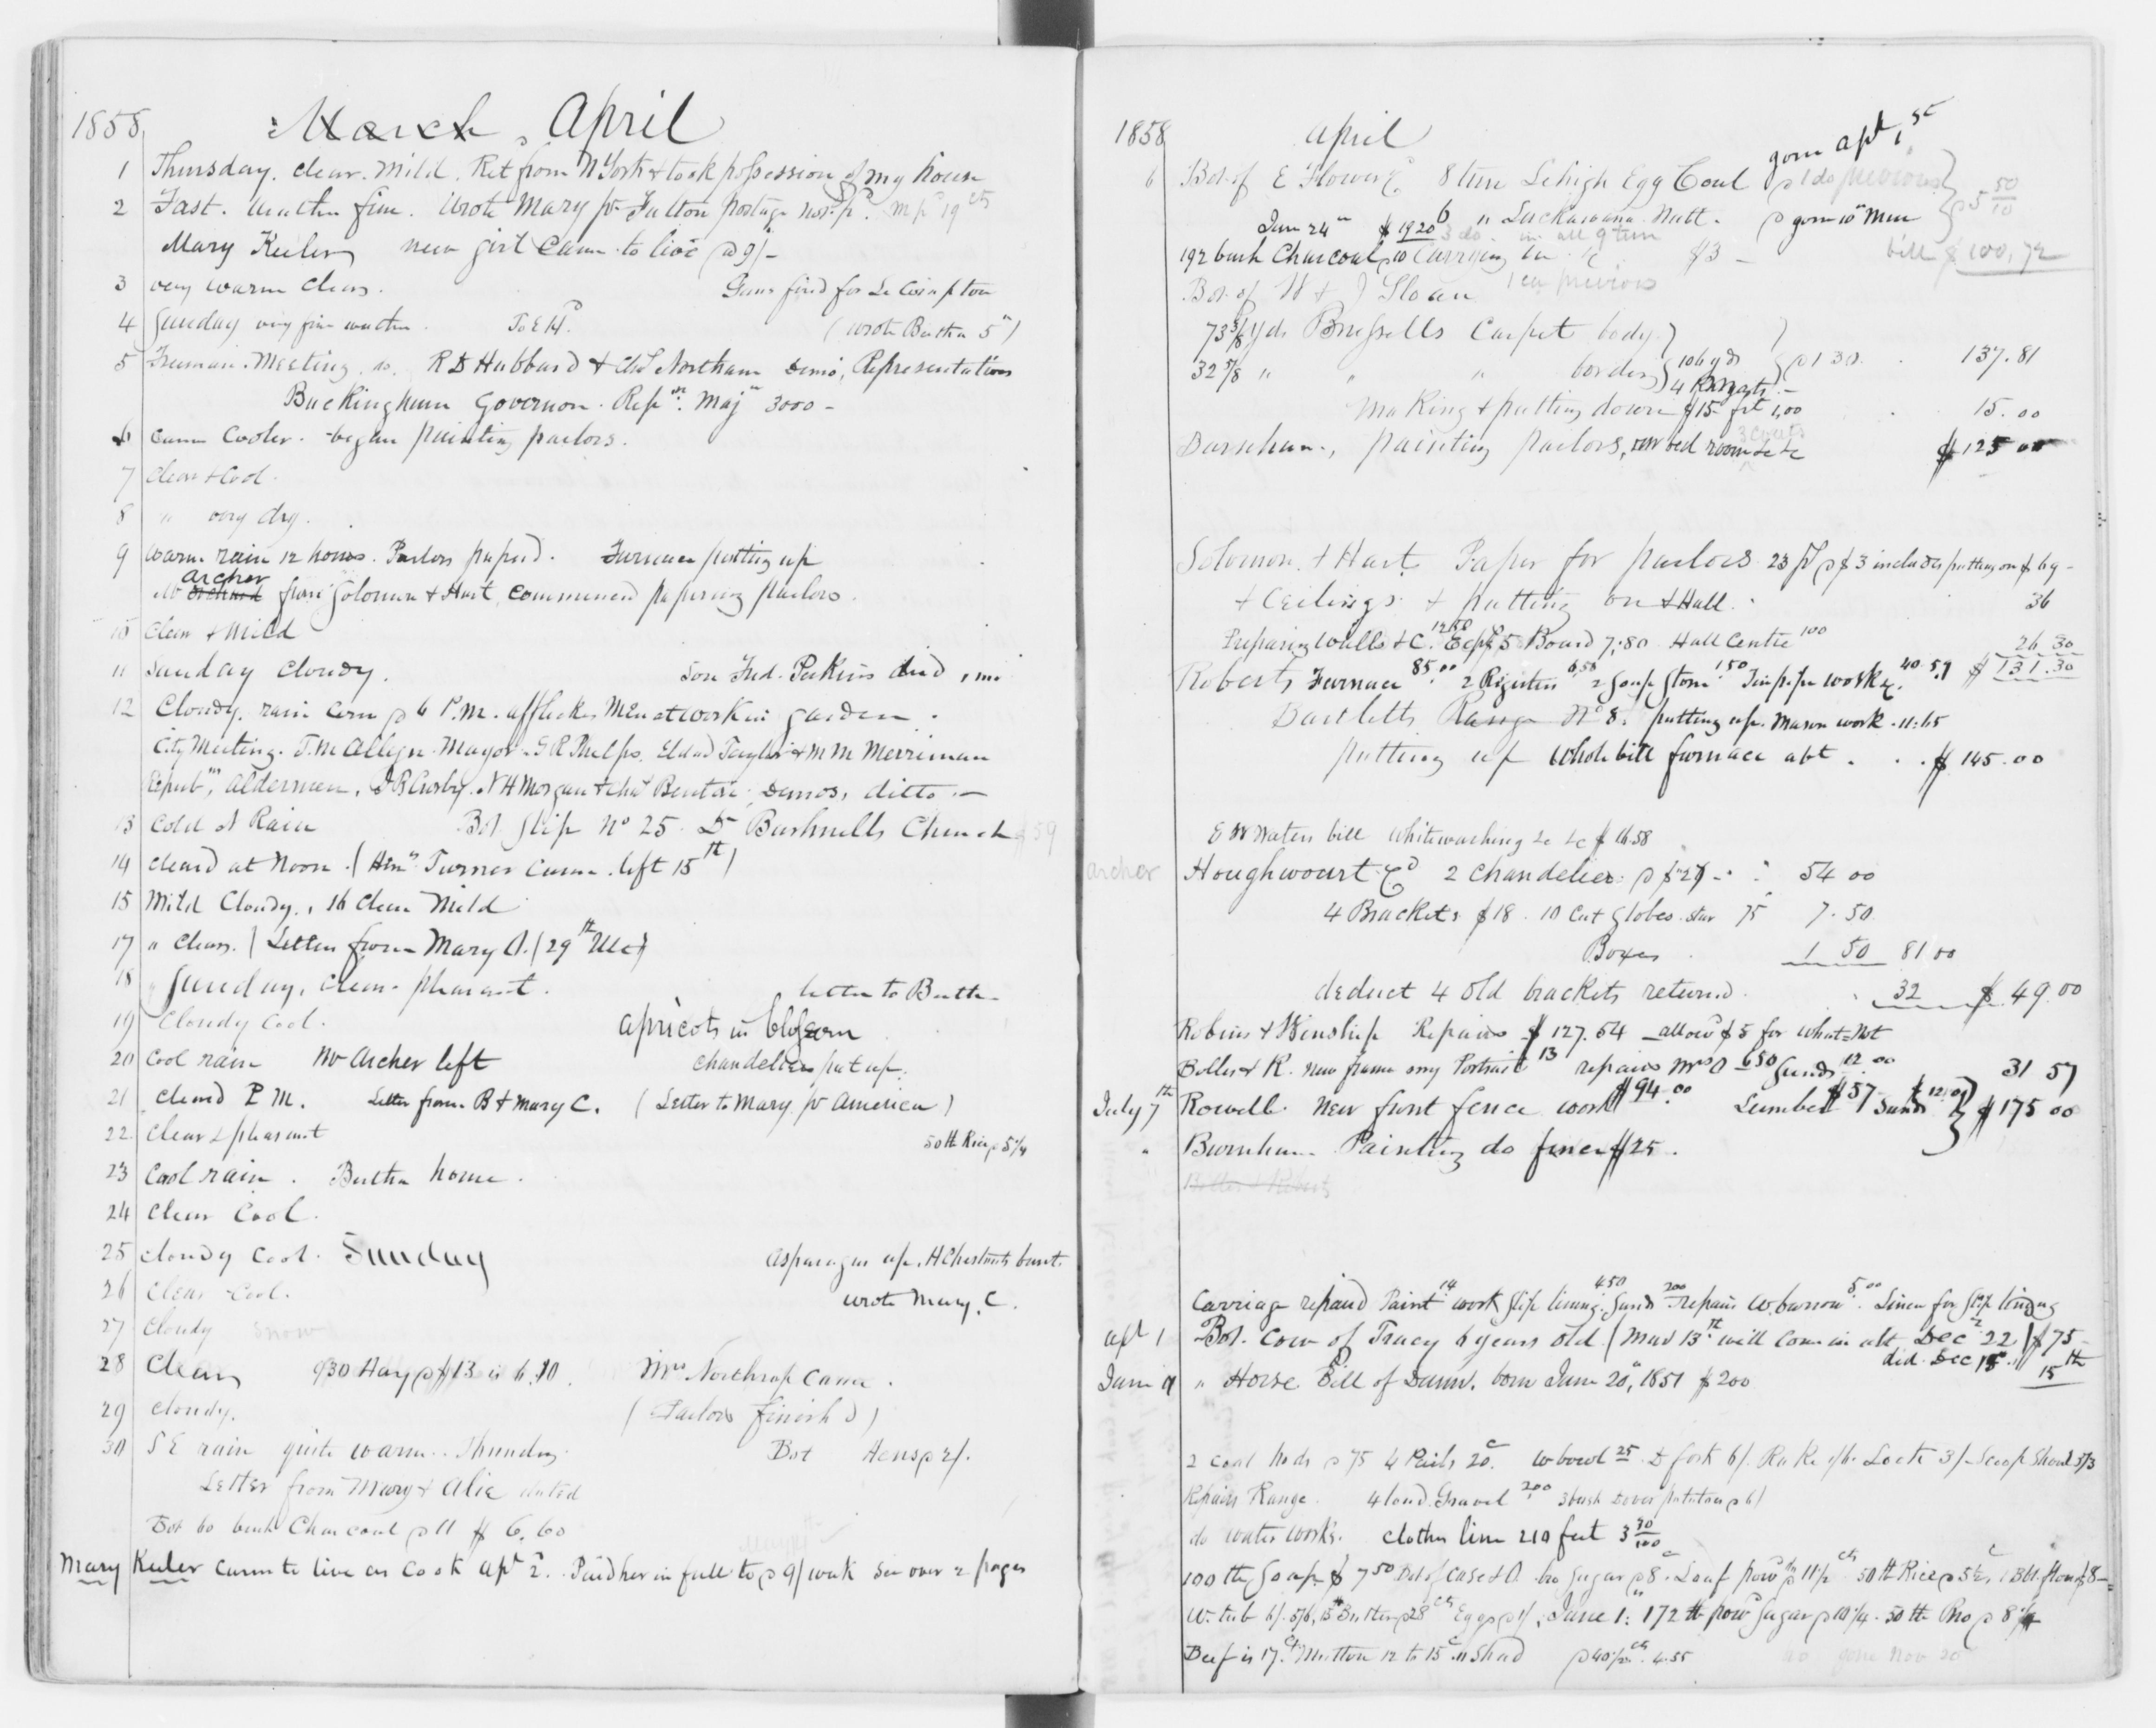 1858 March April
1 Thursday. clear. mild. Ret from N York & took possession of my house
2 Fast. weather fine. wrote Mary pr Fulton postage
Mary Keeler new girl came to live @ 9/-
3 very warm clear. Guns fired for Lecompton
4 Sunday very fine weather. (wrote Bertha 5")
5 Freeman Meeting. R D Hubbard & Chs Northam Demo, Representatives
Buckingham Governor. Repn. Maj 3000 -
6 came cooler. began painting parlors.
7 Clear & Cool.
8 " very dry.
9 Warm rain 12 hours. Parlors papered. Furnace putting up
Mr Archer from Solomon & Hart, commenced papering parlors.
10 clear & mild
11 Sunday Cloudy. Son Fred. Perkins died
12 Cloudy. rain @ 6 P.M. Afflecks men at work in garden.
City Meeting. T. M Allyn Mayor. G R Phelps, Taylor & M M Merriman
Repubn, Aldermen, Crosby, N H Morgan & Chs Benton Demos, ditto -
13 Cold & Rain Bot Slip No 25 Dr Bushnells Church $59
14 cleard at Noon. ( Turner came. left 15th)
15 Mild Cloudy., 16 clear Mild
17 " clear. (Letter from Mary (29th Ult)
18 " Sunday, clear pleasant. letter to Bertha
19 Cloudy Cool. apricots in blossom
20 Cool rain Mr Archer left chandeliers put up.
21 cleard P M. Letter from B & Mary C. (Letter to Mary pr America)
22 Clear & pleasant 50 lb Rice @ 5 1/4
23 Cool rain. Bertha home.
24 Clear Cool.
25 cloudy Cool. Sunday Asparagus up. H Chestnuts burst.
26 Clear Cool. wrote Mary. C.
27 Cloudy Snow
28 Clear 930 Hay @ $13 is 6.10. Mrs Northrop came.
29 cloudy. (Parlors finishd)
30 S E rain quite warm. Thunder. Bot Hens @ 2/.
Letter from Mary & Alice dated
Bot 60 bush Charcoal @ 11 $6.60
Mary Keeler came to live as Cook apl 2d. Paid her in full to @ 9/ week see over 2 pages
1858 April
gone apl 1,
6 Bot of E Flower & Co 8 tons Lehigh Egg Coal @ 1 do previous 5 50/10
June 24" $19 20 6 " Lackawana Nutt.
3 do. in all 9 tons
192 bush Charcoal @ 10 Carrying in &c $3 - bill $100,72
Bot of W & J Sloan
73 3/8 yds Brussells Carpet body
32 5/8 " " " border 106 yds @ 1 30 137.81
making & putting down $15 frt 1,00 15.00
Burnham, painting parlors, bed room &c &c $125 00
3 coats
Solomon & Hart Paper for parlors 23 ps @ $3 includes putting on $69 -
& Ceilings & putting on & Hall. 36
Preparing Walls &c. 12 50 5 Board 7.80 Hall Centre 100 26 30
$131.30
Roberts Furnace 85.00 2 Registers 6.50 2 Soap Stone 1.50 Tin pipe work &c. 40.59
Bartletts Range No 8. putting up. Mason work. 11.65
putting up Whole bill furnace abt . . . $145.00
E W Waters bill whitewashing &c &c $16.58
Archer
Houghwourt & Co 2 chandeliers @ $27 54 00
4 Brackets $18. 10 cut globes star 75 7.50
Boxes 1 50 81 00
deduct 4 old brackets returnd. 32 $49.00
Robins & Winship Repairs $127.54 allowd $5 for What-Not
Bolles & R. new frame my Portrait 13 repairs Mrs O 6 50 Sunds 12.00 31 57
July 7th Rowell. New front fence work $94.00 Lumber $57 Sunds $12.07 $175 00
" Burnham Painting do fence $25.
Carriage repaird Paint 14 work slip lining 4 50 Sunds 2 00 repairs W.barrow 5.00 Linen for slip lining
apl 1 Bot. Cow of Tracy 6 years old (Mar 13th will come in abt Dec 22) $75 -
did Dec 15th
June 9 " Horse Bill of Dunn. born June 20", 1851 $200
2 coal hods @ 75 4 Pails 20c. W bowl 25. D fork 6/. Rake 1/6. Lock 3/- Scoop Shovel 5/3
Repairs Range. 4 load Gravel 2.00 3 bush potatoes @ 6/
do water works. clothes line 210 feet 3 30/100
100 lb Soap $7 50 Bot of Case & O. bro Sugar @ 8c. Loaf powd @ 11 1/2 cts 50 lb Rice @ 5 1/2 c, 1 Bbl. flour $8 -
W. tub 6/. 5/6, Butter @ 28 cts Eggs @ 1/, June 1. 172 lb powd Sugar @ 10 1/4. 50 lb Bro @ 8 1/4
Beef is 17 cts Mutton 12 to 15c. Shad @ 40 4.55
gone Nov 20